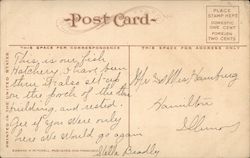 Post Card
PLACE
STAMP HERE
DOMESTIC
ONE CENT
FOREIGN
TWO CENTS
THIS SPACE FOR CORRESPONDENCE
THIS SPACE FOR ADDRESS ONLY
This is our fish
hatchery. I have
times. It also set up
on the porch of the
building, and rested.
if you were only
here we would go again
Bradley
Mr & Mrs
Hamilton
Illinois
PRINTED IN THE UNITED STATES